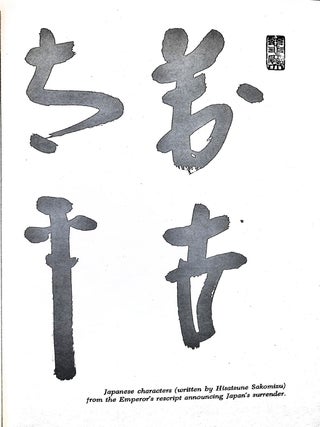 萬世
太平
Japanese characters (written by Hisatsune Sakomizu)
from the Emperor's rescript announcing Japan's surrender.